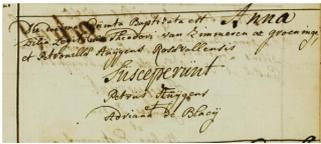 Die vicesima quinta Baptizata est Anna
filia Theodori van Zommeren de groeninge
et Petronillæ Huijgens Rosvellensis
Susceperunt
Petrus Huijgens
et
Adriana de Blaeij